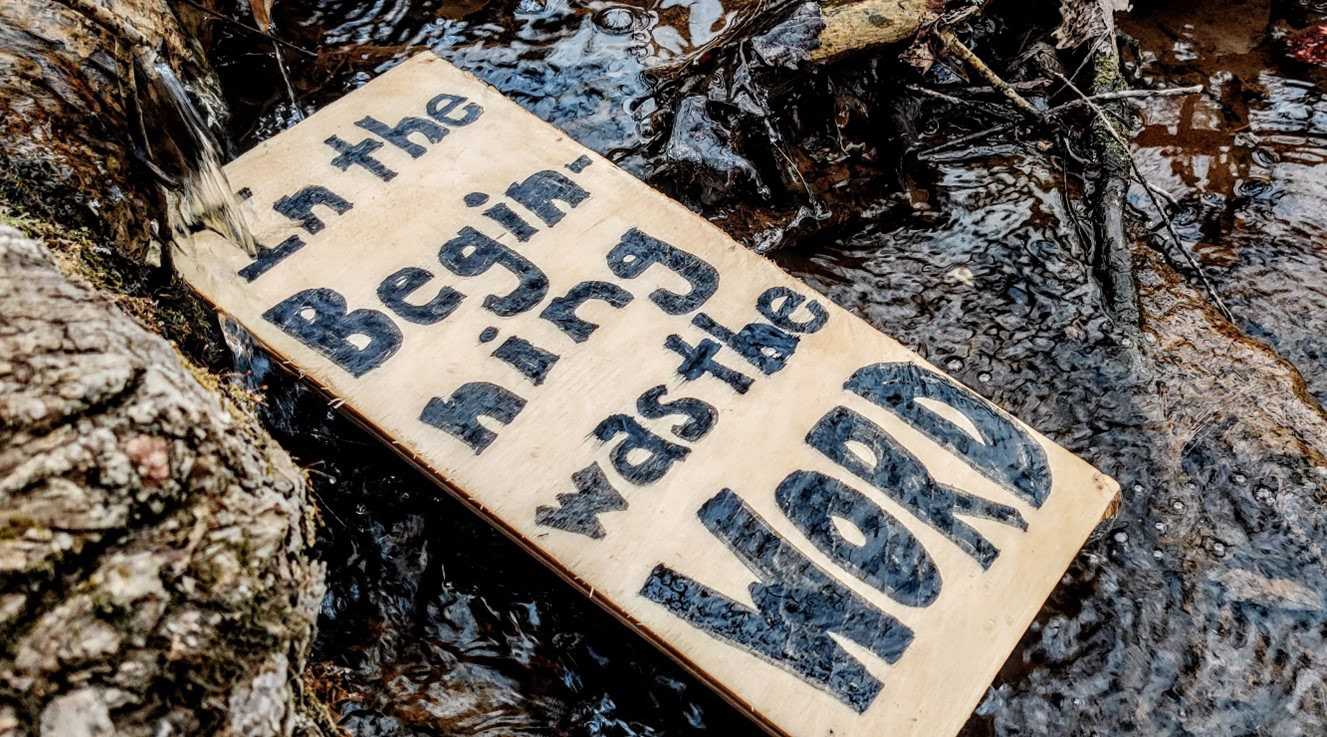 in the
Begin-
hing
was the
WORD